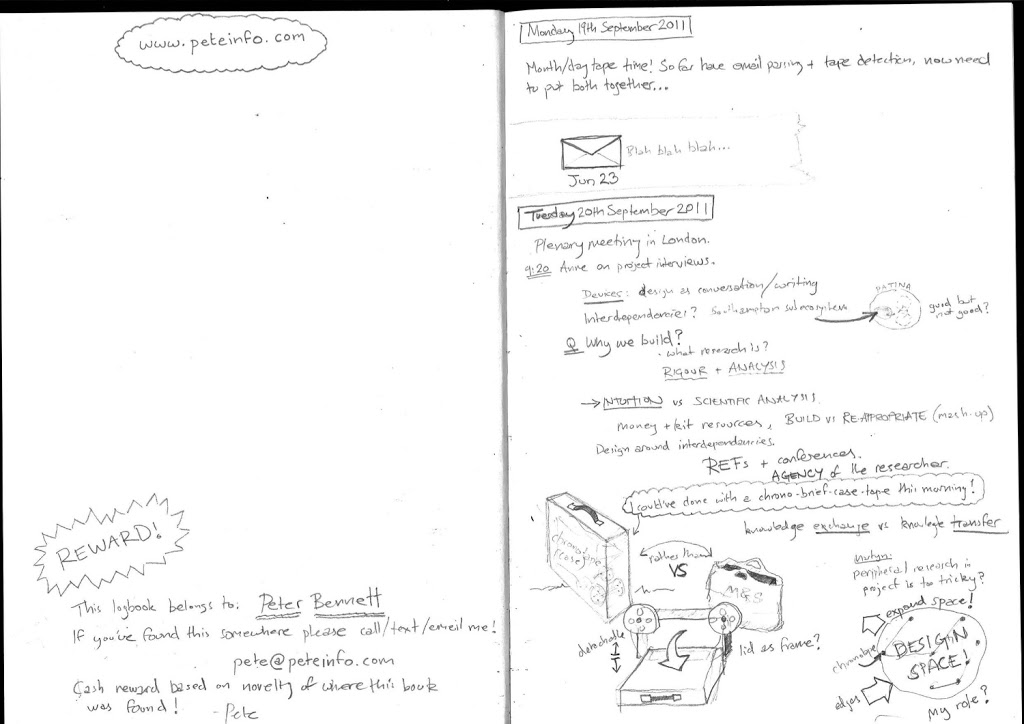 www.peteinfo.com
REWARD!
This logbook belongs to: Peter Bennett
If you've found this somewhere please call/text/email me!
pete@peteinfo.com
Cash reward based on novelty of where this book
was found!
- Pete
Monday 19th September 2011
Month/day tape time! So far have email parsing + tape detection, now need
to put both together...
Blah blah blah...
Jun 23
Tuesday 20th September 2011
Plenary meeting in London.
9:20 Anne on project interviews.
Devices: design as conversation/writing
Interdependencies? Southampton subecosystem
PATINA
good but
not good?
Q Why we build?
- what research is?
RIGOUR + ANALYSIS
→ INTUITION vs SCIENTIFIC ANALYSIS
money + kit resources, BUILD vs RE-APPROPRIATE (mash-up)
Design around interdependencies.
REFs + conferences.
AGENCY of the researcher.
I could've done with a chrono-brief-case-tape this morning!
knowledge exchange vs knowledge transfer
chronotape
(case)
rather than
VS
M&S
detachable
lid as frame?
peripheral research in
project is to tricky?
expand space!
DESIGN
SPACE!
chronotape
edges
My role?